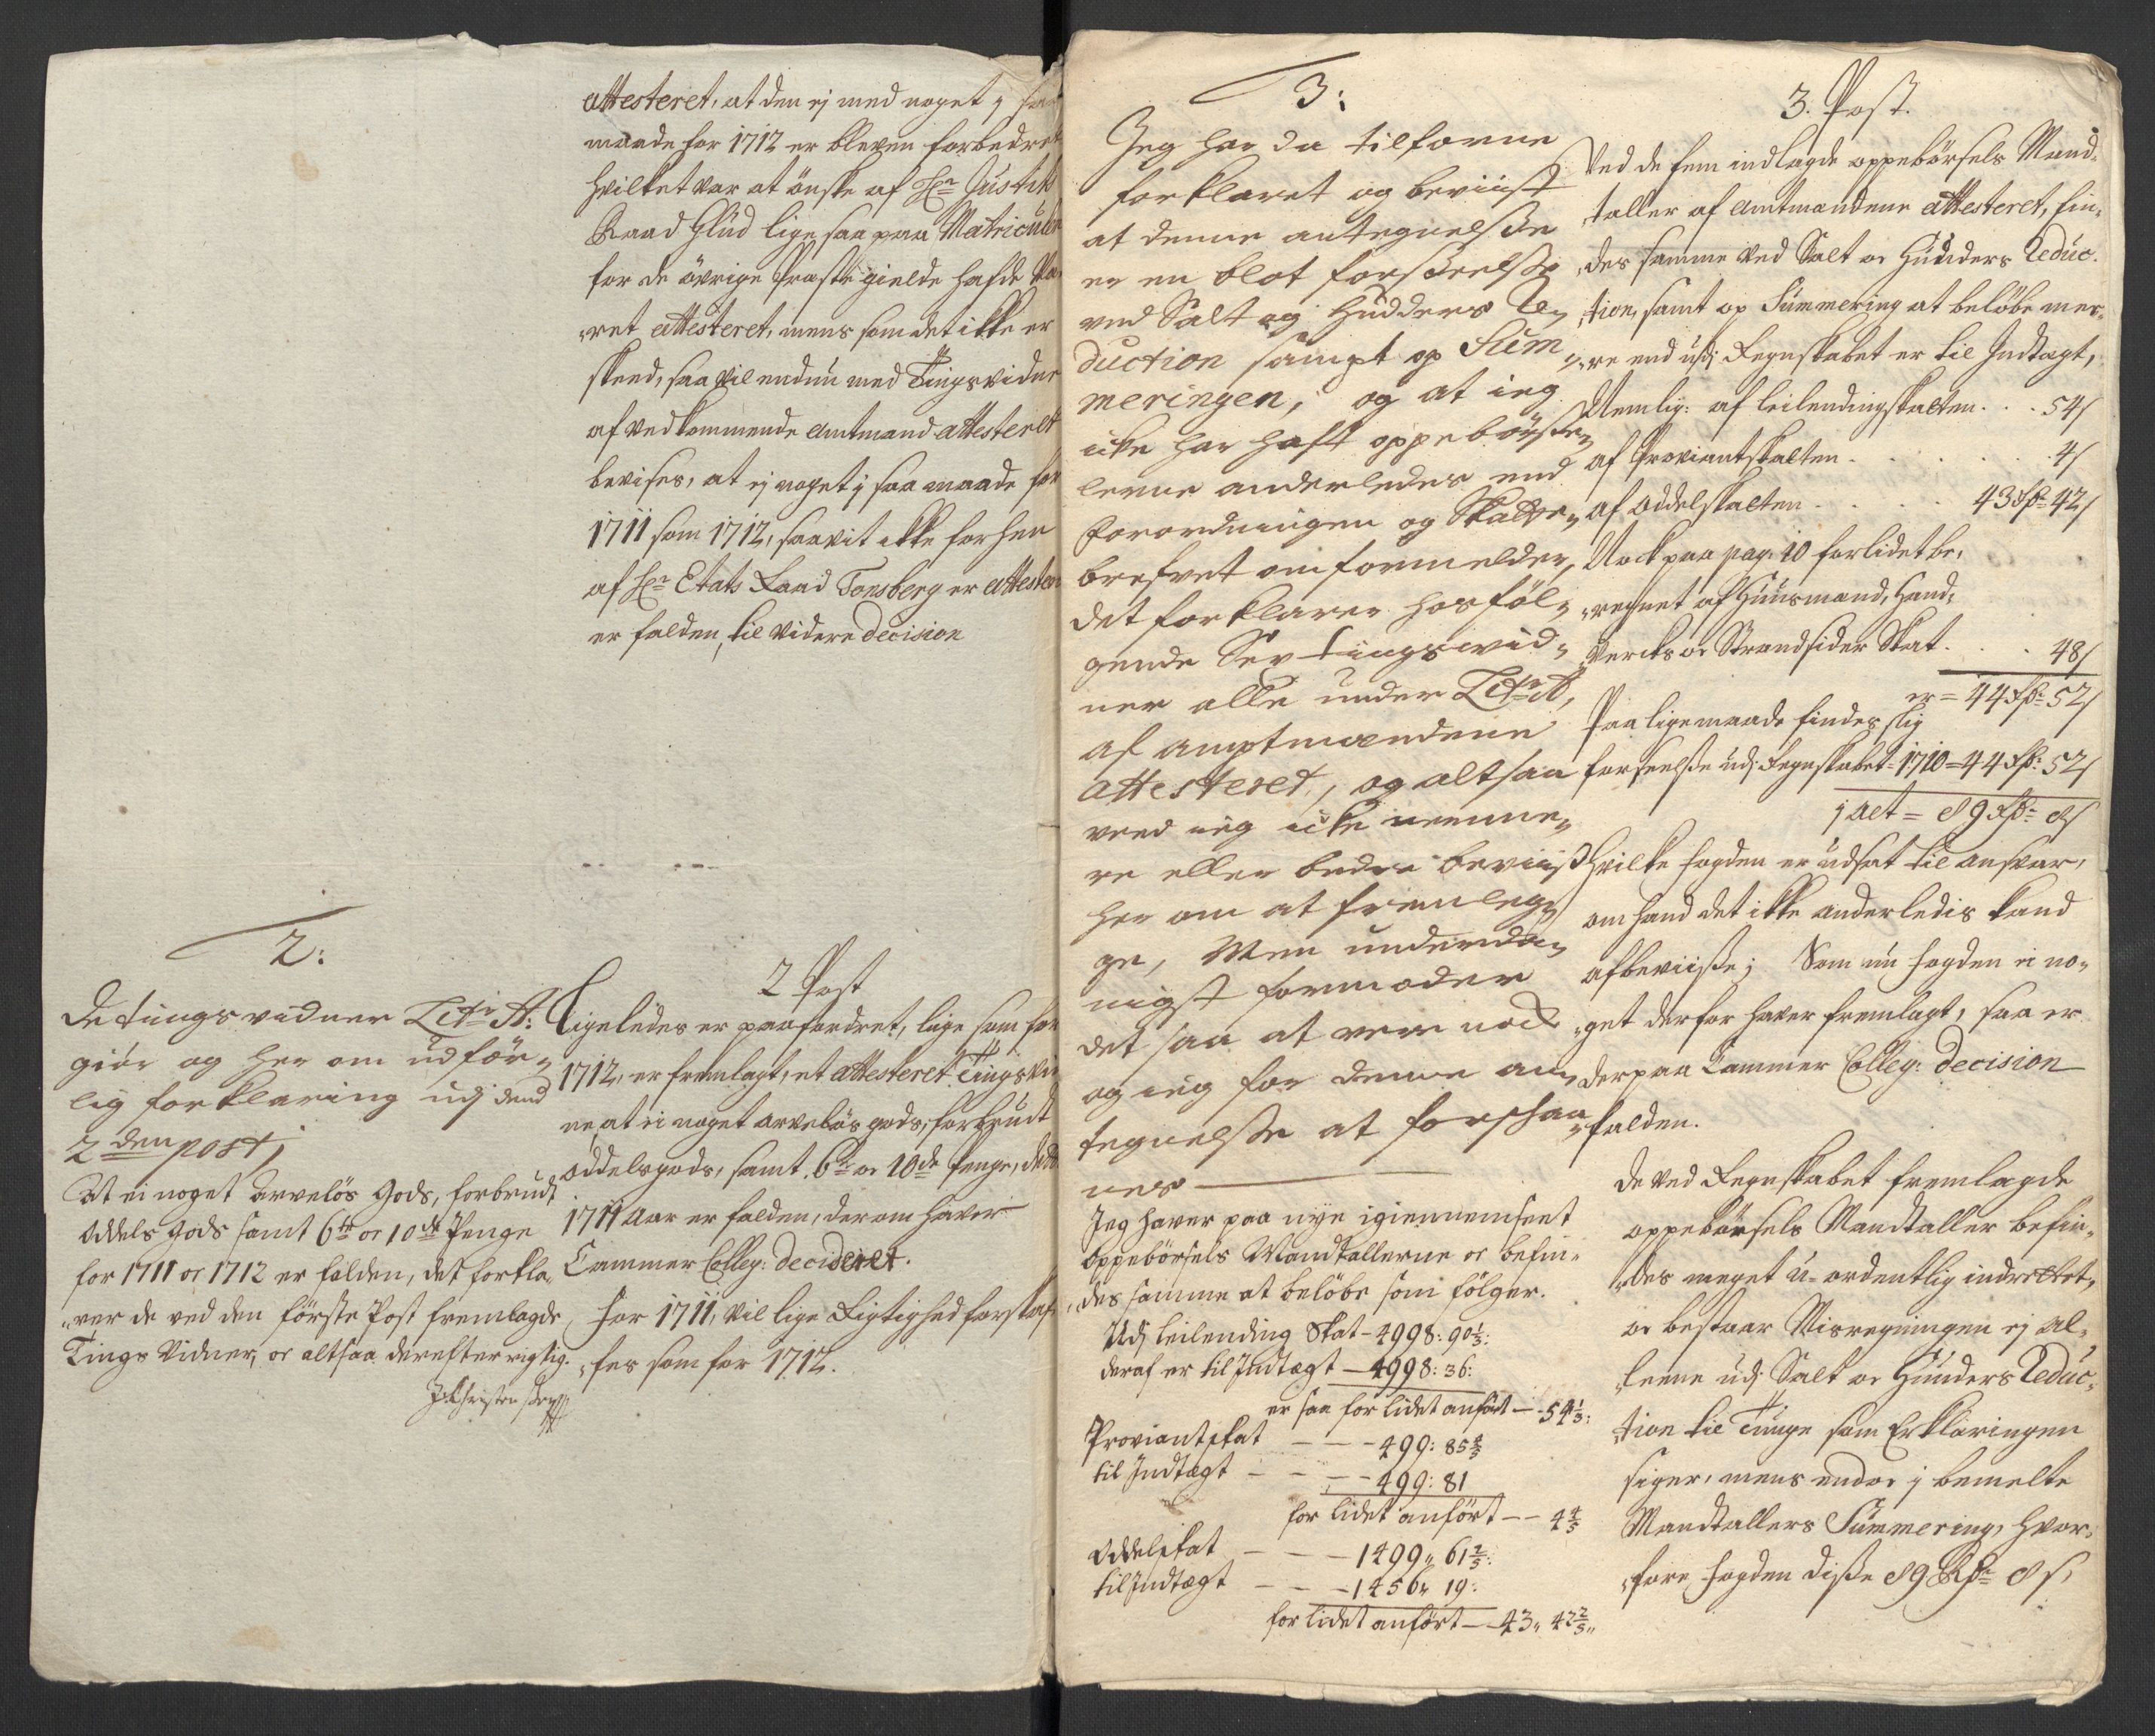 attesteret, at den ej med noget j saa
maade for 1712 er bleven forbedret
hvilket var at önske af Hr Justits
Raad Glud lige saa paa Matriculen
for de övrige Præstegielde hafde væ
„ret attesteret, mens som det ikke er
skeed, saa vil endnu med Tingsvidne
af vedkommende Amtmand attesteret
bevises, at ej noget j saa maade for
1711 som 1712, saavit ikke forhen
af Hr Etats Raad Tonsberg er attesteret
er falden, til videre decision
2:
De tingsvidner Litr A:
giör og her om udför„
lig forklaring udj dend
2den post;
At ei noget arvelös Gods, forbrudt
Oddels Gods samt 6te oc 10de Penge
for 1711 oc 1712 er falden, det forkla„
„rer de ved den förste Post fremlagde
Tings Vidner, oc altsaa derefter rigtig.
2 Post
Ligeledes er paafordret, lige som for
1712, er fremlagt, et attesteret Tingsvid
ne, at ei noget arvelös gods, forbrudt
Oddelsgods, samt 6te oc 10de Penge, dette
1711 Aar er falden, derom haver
Cammer Colleg: decideret.
For 1711, vil lige Rigtighed forskaf„
„fes som for 1712.
3:
Jeg har da tilforne
forklaret og beviist
at denne antegnelsse
er en blot forseelsse
ved Salt og Hudders Re„
duction sampt op Sum„
meringen, og at ieg
icke har haft oppebörse„
lerne anderledes end
Forordningen og Skatte„
brefvet omformelder,
det forklarer hosföl„
gende Sex tingsvid„
ner alle under Litr A,
af amptmændene
attesteret, og altsaa
veed ieg icke nemme„
re eller bedre beviiss
her om at fremleg„
ge, Men underda„
nigst formoder
det saa at være nock
og ieg for denne an„
tegnelsse at forschaa„
nes
Jeg haver paa nye igiennemseet
Oppebörsels Mandtallerne oc befin„
„des samme at belöbe som fölger.
Udj Leilending Skat – 4998: 90 1/3:
deraf er til Indtægt – 4998: 36:
er saa for lidet anfört – 54 1/3:
Proviantskat – – – 499: 85 4/5
til Indtægt – – – 499: 81
for lidet anfört – – 4 4/5
Oddelskat – – – 1499„ 61 2/5:
til Indtægt – – – 1456„ 19:
for lidet anfört – 43„ 42 2/5„
3. Post.
Ved de fem indlagde oppebörsels Mand„
taller af Amtmandene attesteret, fin„
„des samme ved Salt oc Hudders Reduc„
„tion, samt op Summering at belöbe mee„
„re end udj Regnskabet er til Indtagt,
Nemlig: af leilendingskatten . . . 54 s
af Proviantskatten . . . . . . 4 s
af Oddelskatten . . . . 43 Rdr 42 s
Noch paa pag: 10 forlidet be„
„regnet af Huusmænd, Hand„
„vercks oc Strandsider Skat . . . 48 s
er = 44 Rdr 52 s
Paa lige maade findes slig
forseelse udj Regnskabet 1710 = 44 Rdr 52 s
j alt = 89 Rdr 8 s
Hvilke fogden er udsat til ansvar,
om hand det ikke anderledis kand
afbeviisse; Som nu fogden ei no„
„get derfor haver fremlagt, saa er
derpaa Cammer Colleg: decision
falden.
De ved Regnskabet fremlagde
oppebörsels Mandtaller befin„
„des meget u-ordentlig indrettet,
oc bestaar Misregningen ej al„
„leene udj Salt oc Hunders Reduc„
„tion til Penge som Erklæringen
siger, mens endoc j bemelte
Mandtallers Summering, hvor„
„fore fogden disse 89 Rdr 8 s,